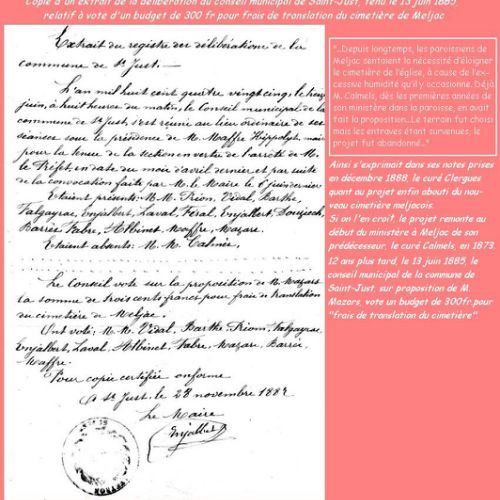 Copie d'un extrait de la délibération du conseil municipal de Saint-Just, tenu le 13 juin 1885,
relatif à vote d'un budget de 300 fr pour frais de translation du cimetière de Meljac
Extrait du registre des délibérations de la
commune de St Just.
L'an mil huit cent quatre vingt cinq, le treize
juin, à huit heure du matin, le Conseil municipal de la
commune de St Just, s'est réuni au lieu ordinaire de ses
séances sous la présidence de M. Maffre Hippolyte, maire
pour la tenue de la section en vertu de l'arrêté de M.
le Préfet, en date du mois d'avril dernier et par suite
de la convocation faite par M. le Maire le juin dernier
Etaient présents: M.M. Prion, Vidal, Barthe,
Falgayrac, Enjalbert, Laval, Fédal, Enjalbert,
Barrée, Fabre, Albinet, Maffre, Mazars.
Etaient absents: M.M.
Le Conseil vote sur la proposition de M. Mazars
la somme de trois cents francs pour frais de translation
du cimetière de Meljac.
Ont voté: M.M. Vidal, Barthe, Prion, Falgayrac,
Enjalbert, Laval, Albinet, Fabre, Mazars, Barrée
Maffre.
Pour copie certifiée conforme
A St Just, le 28 novembre 1887
Le Maire
Enjalbert
"...Depuis longtemps, les paroissiens de
Meljac sentaient la nécessité d'éloigner
le cimetière de l'église, à cause de l'ex-
cessive humidité qu'il y occasionne. Déjà
M. Calmels, dès les premières années de
son ministère dans la paroisse, en avait
fait la proposition...Le terrain fut choisi
mais les entraves étant survenues, le
projet fut abandonné..."
Ainsi s'exprimait dans ses notes prises
en décembre 1888, le curé Clergues
quant au projet enfin abouti du nou-
veau cimetière meljacois.
Si on l'en croit, le projet remonte au
début du ministère à Meljac de son
prédecesseur, le curé Calmels, en 1873.
12 ans plus tard, le 13 juin 1885, le
conseil municipal de la commune de
Saint-Just, sur proposition de M.
Mazars, vote un budget de 300fr.pour
"frais de translation du cimetière".